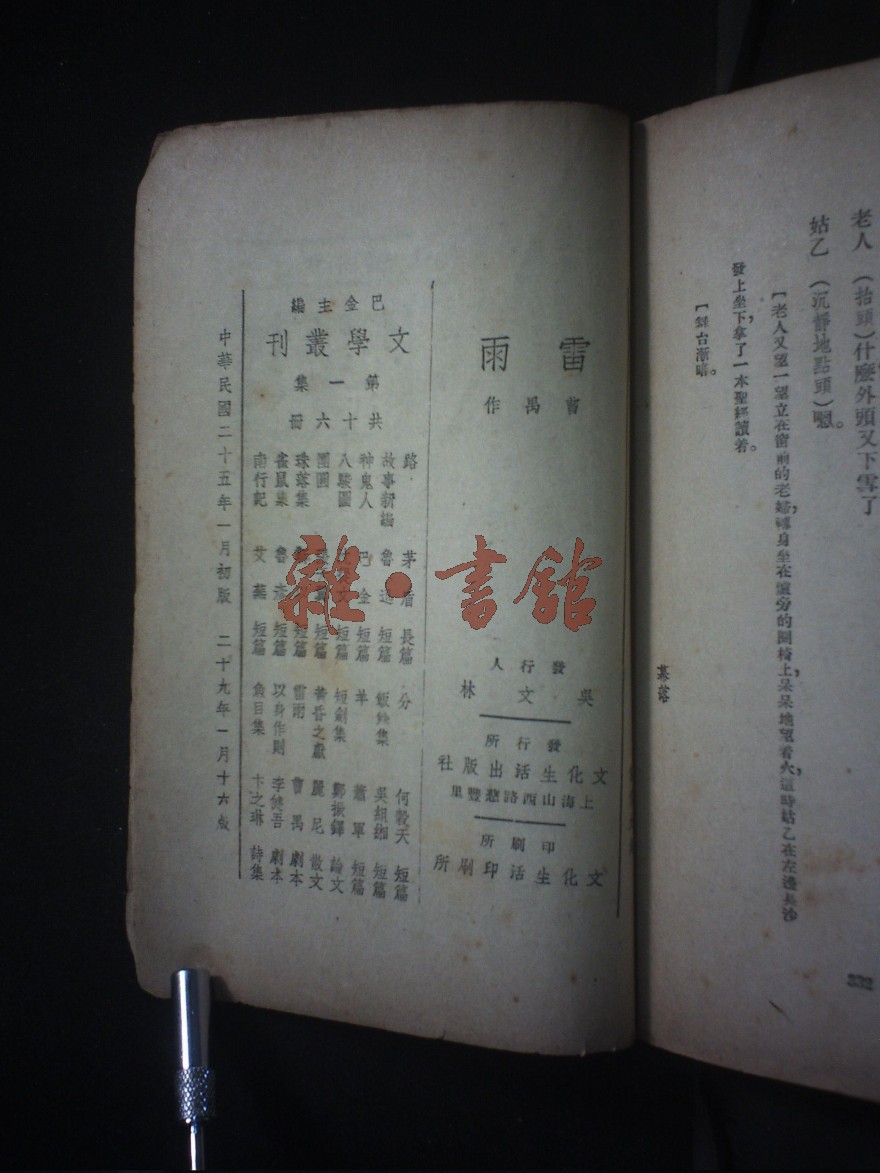 老人　（抬頭）什麼外頭又下雪了
姑乙　（沉靜地點頭）嗯。
［老人又望一望立在窗前的老婦，轉身坐在爐旁的圈椅上，呆呆地望着火，這時姑乙在左邊長沙
發上坐下，拿了一本聖經讀着。
［舞台漸暗。
幕落
332
雷雨
曹禺作
發行人
吳文林
發行所
文化生活出版社
上海山西路慈豐里
印刷所
文化生活印刷所
巴金主編
文學叢刊
第一集
共十六冊
路　茅盾　長篇
故事新編　魯迅　短篇
神鬼人　巴金　短篇
八駿圖　文　短篇
團圓　短篇
珠落集　短篇
雀鼠集　魯彥　短篇
南行記　艾蕪　短篇
分　何穀天　短篇
飯餘集　吳組緗　短篇
羊　蕭軍　短篇
短劍集　鄭振鐸　論文
黃昏之獻　麗尼　散文
雷雨　曹禺　劇本
以身作則　李健吾　劇本
魚目集　卞之琳　詩集
中華民國二十五年一月初版　二十九年一月十六版
雜·書館